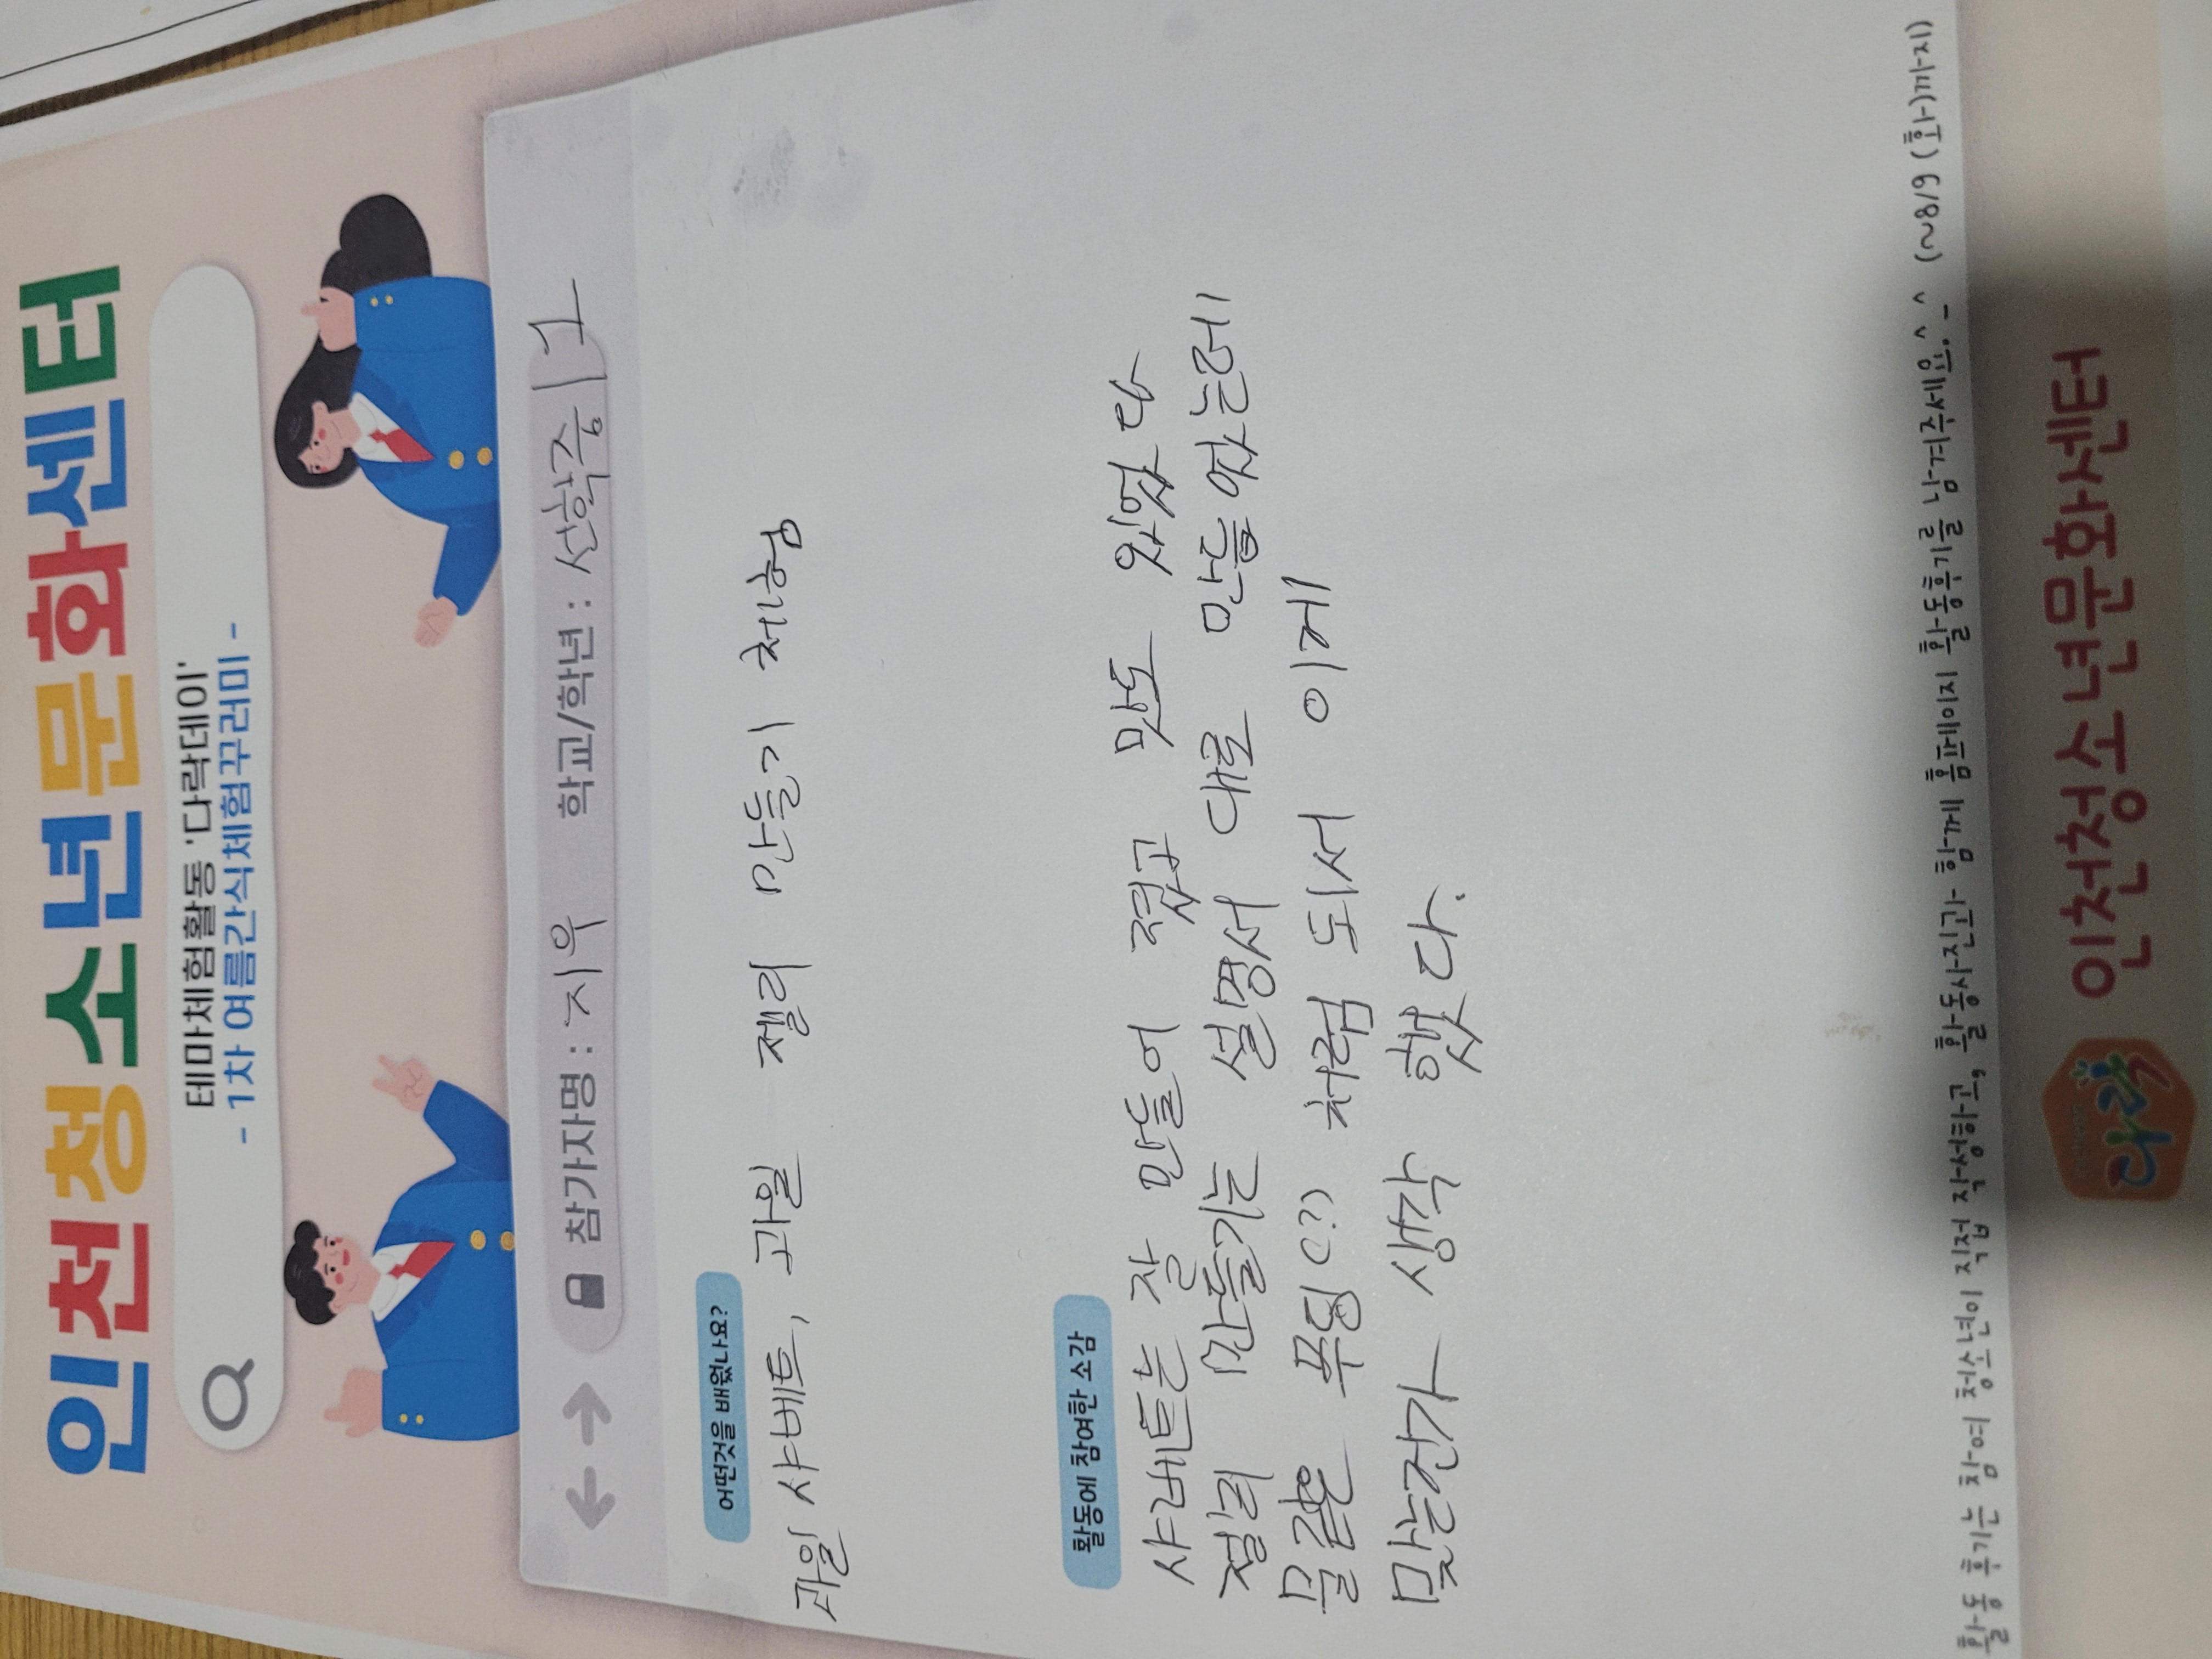 인천청소년문화센터
테마체험활동 '다락데이'
- 1차 여름간식체험꾸러미 -
참가자명 : 지우 학교/학년 : 선학중 1
어떤것을 배웠나요?
과일 샤베트, 과일 젤리 만들기 체험
활동에 참여한 소감
샤베트는 잘 만들어 졌고 맛도 있었다
젤리 만들기는 설명서 대로 만들었는데
물같은 푸딩(?) 처럼 되서 이게
맞는건가 생각 했다.
활동 후기는 참여 청소년이 직접 작성하고, 활동사진과 함께 홈페이지 활동후기를 남겨주세요.^_^ (~8/9 (화)까지)
다락 인천청소년문화센터